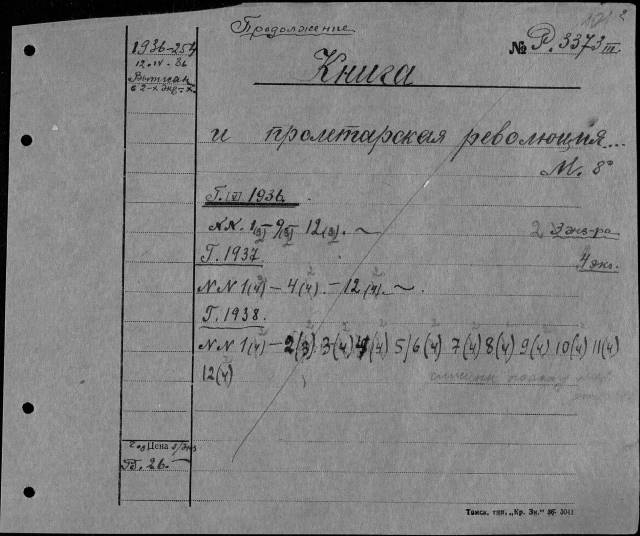 Продолжение
1936-254
12.IV-36
Выписан
в 2-х экз-х
№ Р. 3373 III
Книга
и пролетарская революция...
М. 8°
Г. VI 1936.
NN. 1(3)-9(3)- 12(3). ~
2 экз-ра
Г. 1937.
4 экз.
NN 1(4) - 4(4). - 12(4). ~.
Г. 1938.
NN 1(4) - 2(3) 3(4) 4(4) 5/6(4) 7(4) 8(4) 9(4) 10(4) 11(4)
12(4)
Цена
Р. 26.-
Томск. тип. „Кр. Зн.“ 36- 3041